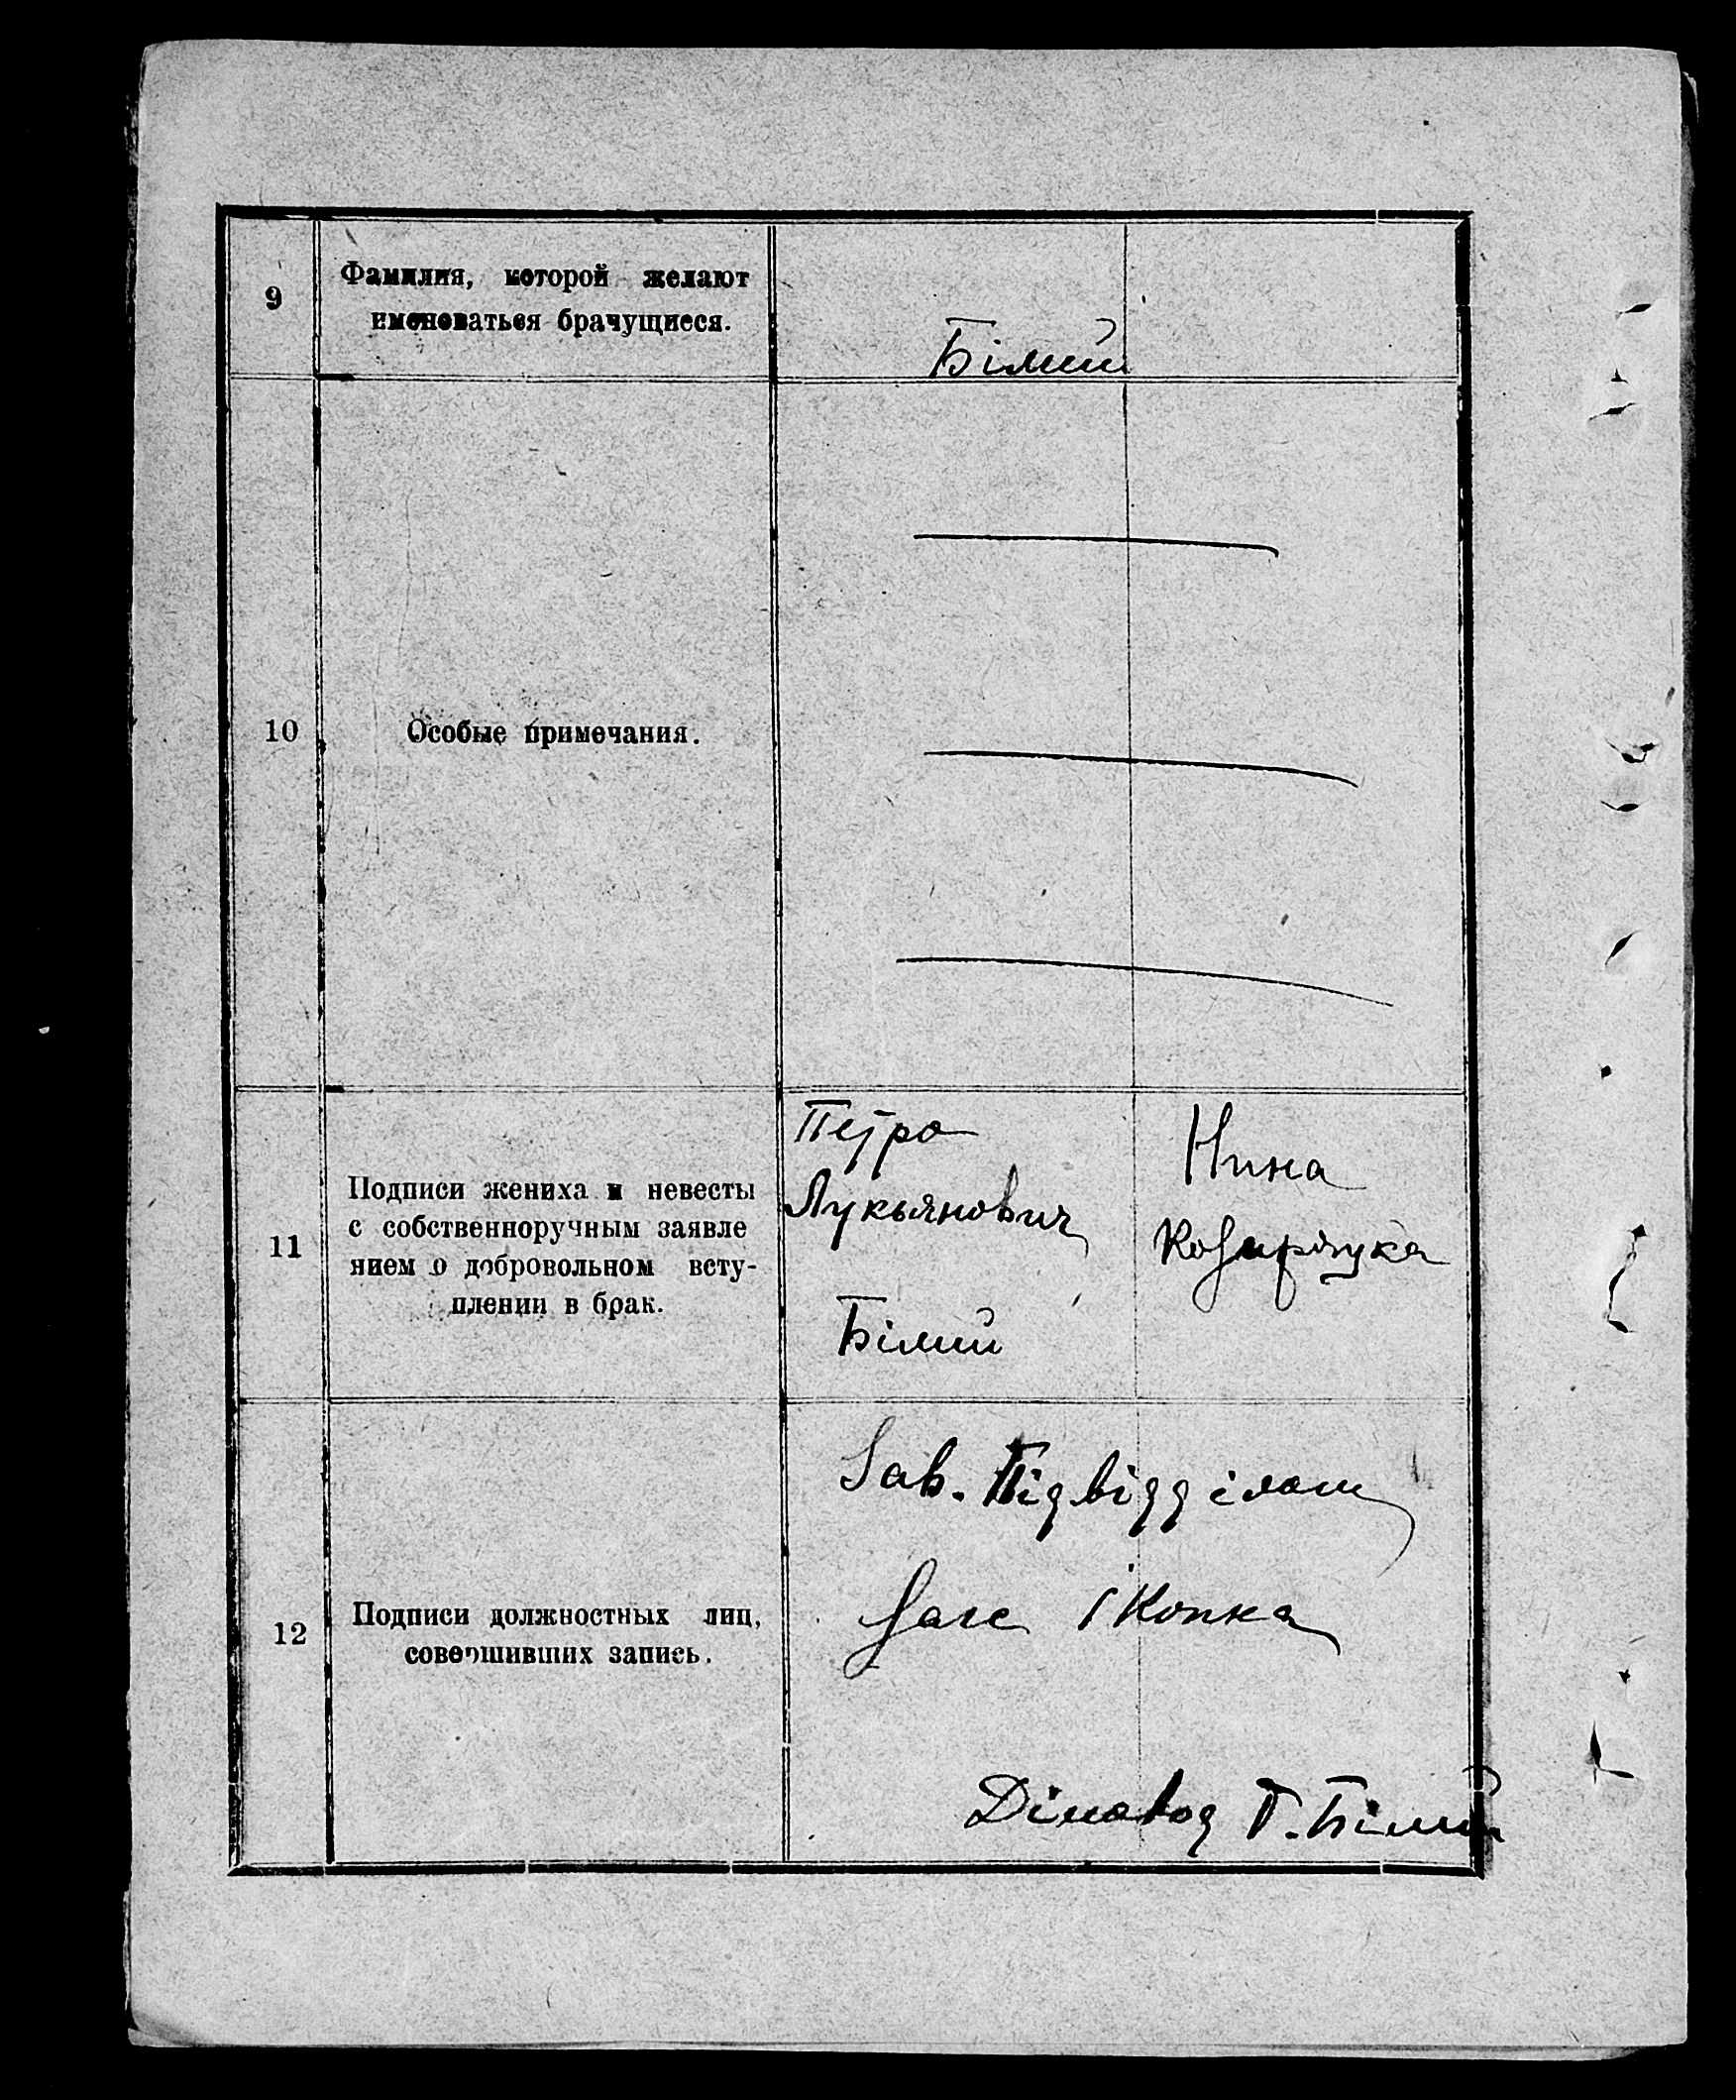 9
Фамилия, которой желают
именоваться брачущиеся.
Білий
10
Особые примечания.
11
Подписи жениха и невесты
с собственноручным заявле
нием о добровольном всту-
плении в брак.
Петро
Лукьянович
Білий
Нина
12
Подписи должностных лиц,
совершивших запись.
Зав. Підвідділом
Діловод П. Білий